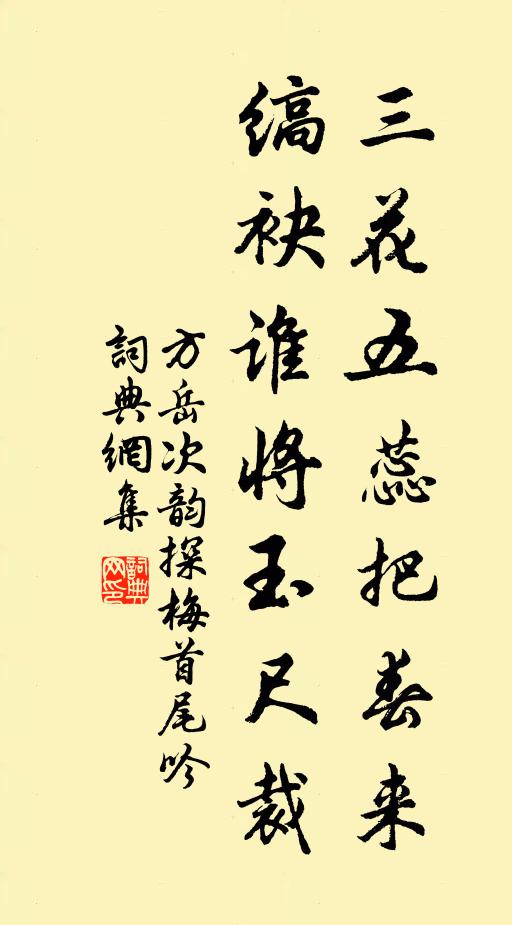 三花五蕊把春来
缟袂谁将玉尺裁
方岳次韵探梅首尾吟
詞典網集
詞典網印